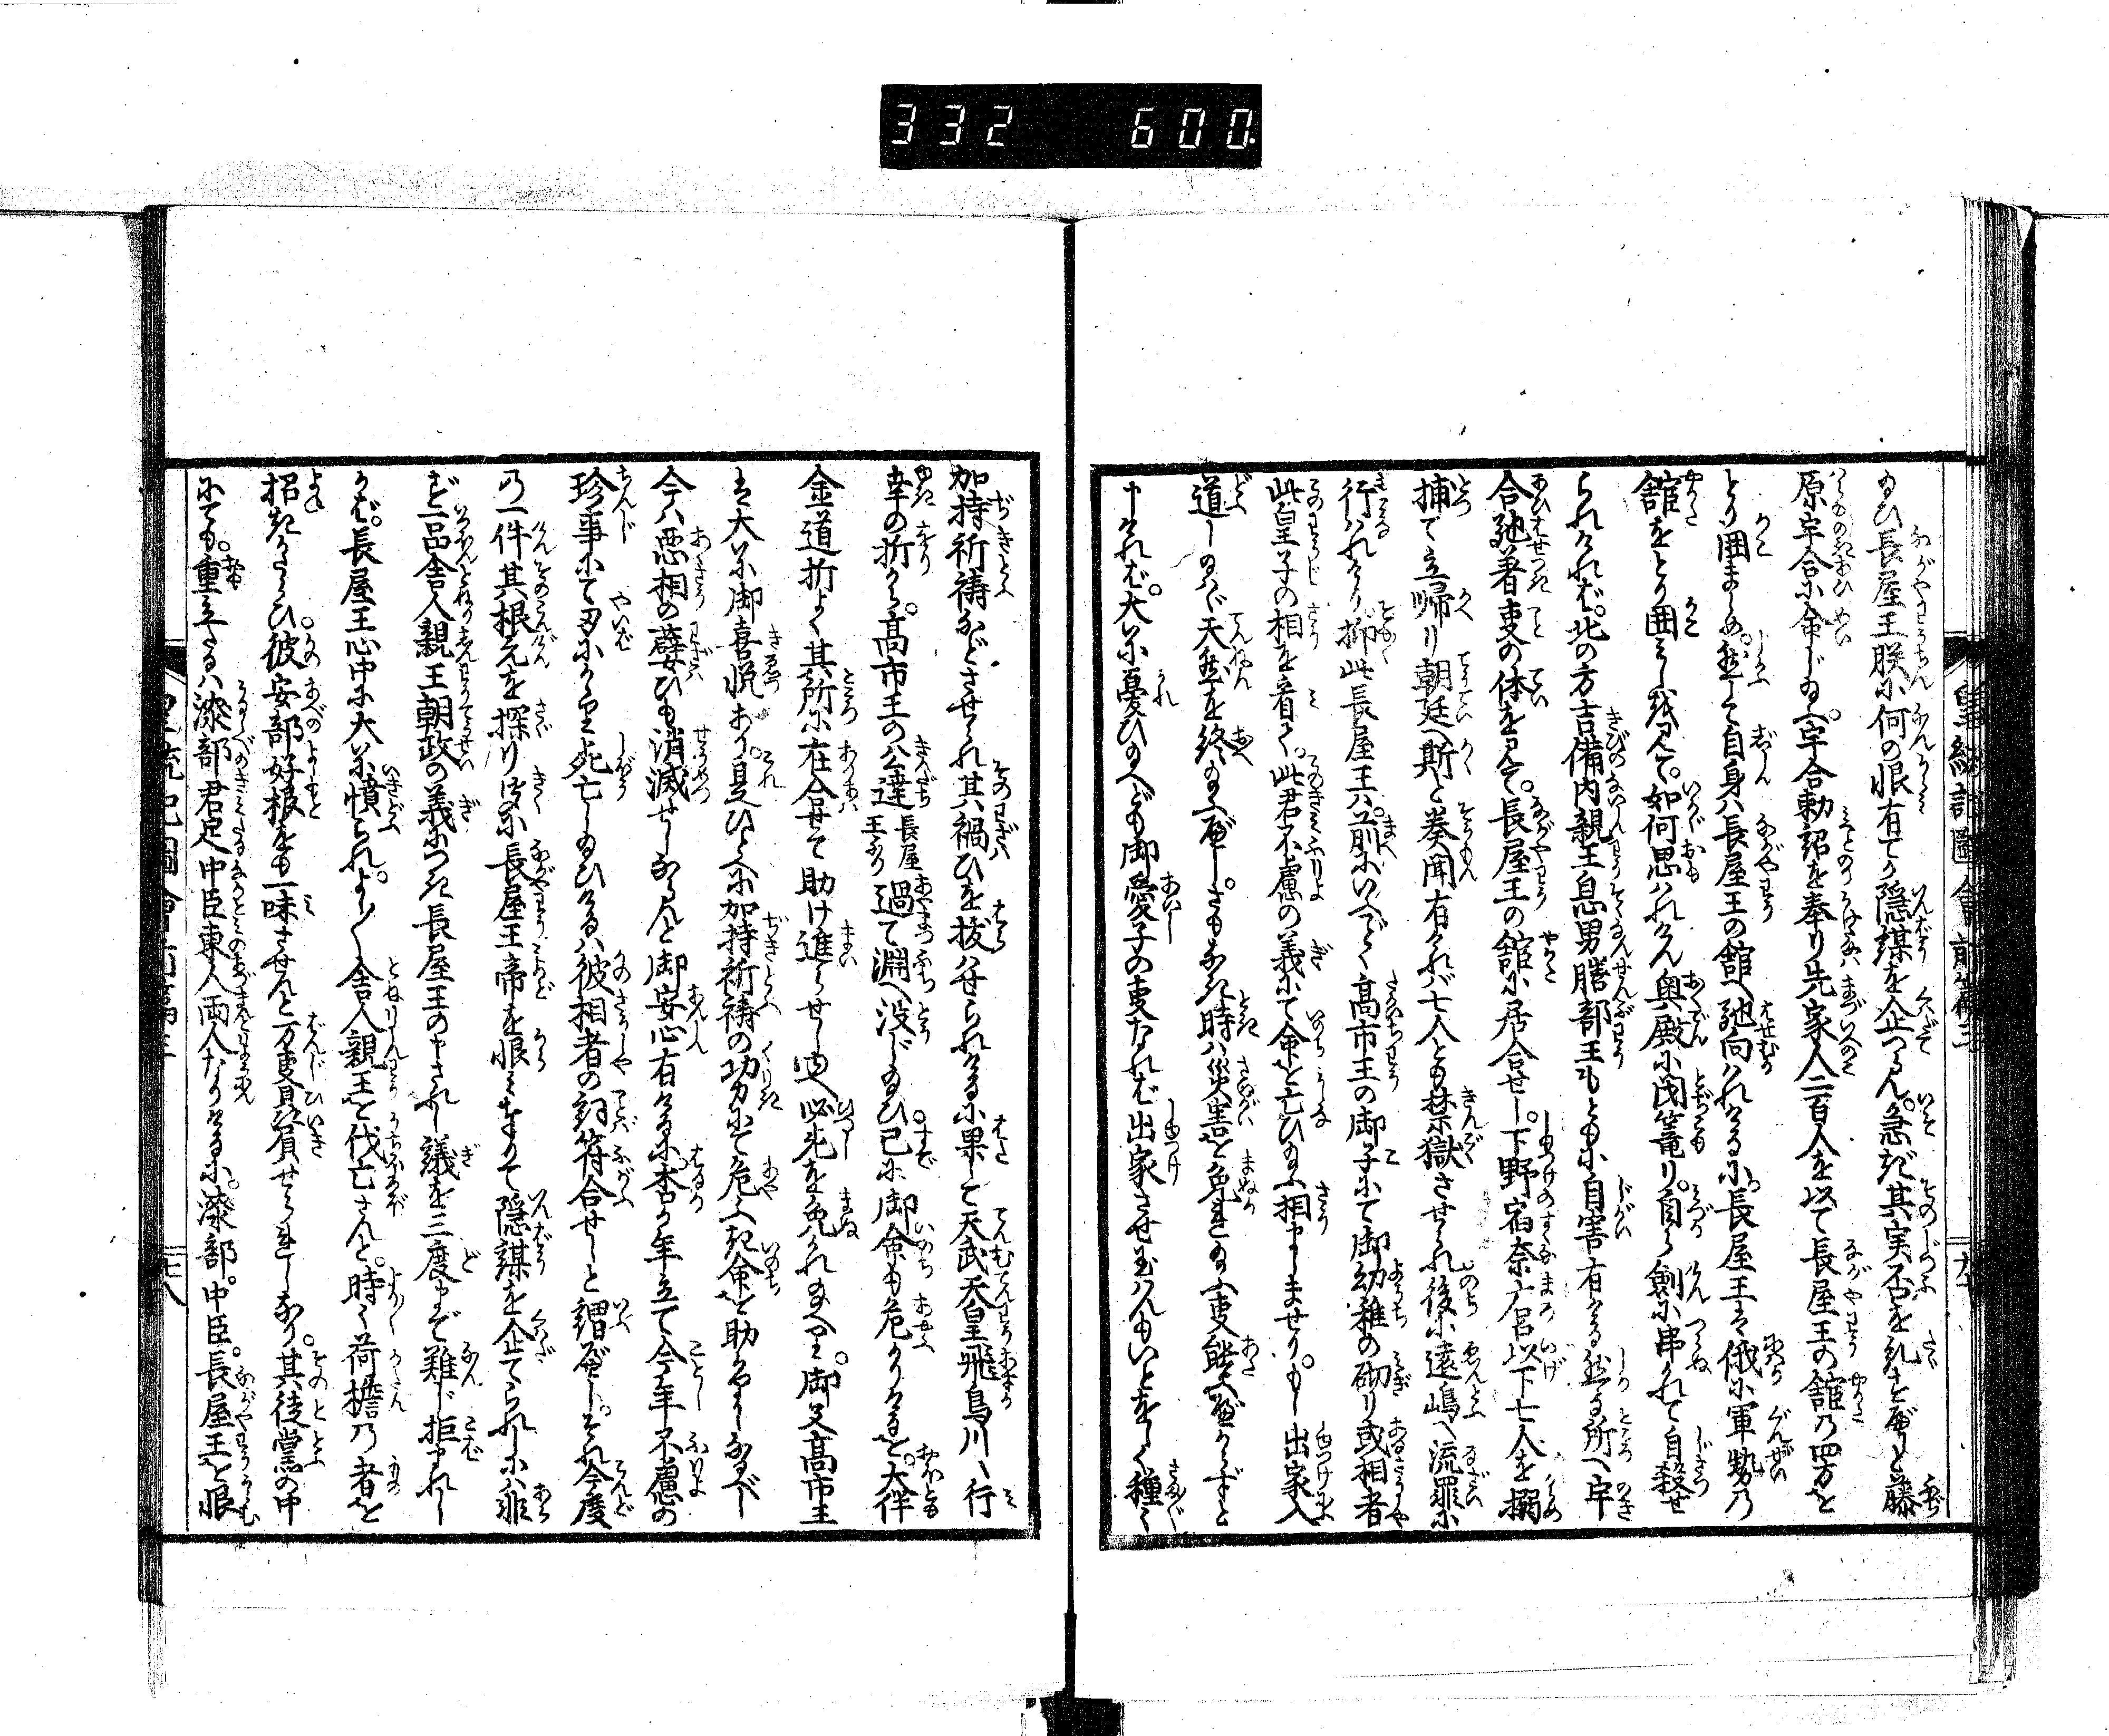 332 600.
皇統記図会前篇三
給ひ長屋王朕に何の恨有てか隠謀を企つらん。急ぎ其実否を糺すべしと藤
原宇合に命じ給へ。宇合勅詔を奉り先家人二百人を以て長屋王の舘の四方を
とり囲ましめ。然して自身ハ長屋王の舘へ馳向ハれけるに。長屋王ハ俄に軍勢の
舘をとり囲みしを見て。如何思ハれけん奥殿に閉篭り。自ら剣に串かれて自殺せ
られけれバ。北の方吉備内親王息男膳部王もともに自害有ける然る所へ宇
合馳着事の体を見て。長屋王の舘に居合せし。下野宿奈麿以下七人を搦
捕て立帰り朝廷へ斯と奏聞有けれバ七人とも禁獄させられ後に遠嶋へ流罪に
行ハれけり抑此長屋王ハ。前にいへる高市王の御子にて御幼稚の砌り或相者
此皇子の相を看て。此君不慮の義にて命を亡ひ給ふ相ましませり。もし出家入
道し給ハヾ天然を終り給ふべし。さもなき時ハ災害を免れ給ふ事能ふべからずと
申けれバ。大に憂ひ給へども御愛子の事なれバ出家させ玉ハんもいとをしく種々
加持祈祷などさせられ其禍ひを抜ハせられけるに果して天武天皇飛鳥川へ行
幸の折から。高市王の公達長屋王なり過て淵へ没し給ひ。已に御命も危かりけるを。大伴
金道折よく其所に在合せて助け進らせしゆへ必死を免れ給へり。御父高市王
ハ大に御喜悦あり。是ひとへに加持祈祷の功力にて危ふき命を助かりしなるべし
今ハ悪相の孽ひも消滅せしならんと御安心有けるに。杳か年立て今年不慮の
珍事にて刃にかゝり死亡し給ひけるハ彼相者の詞符合せしと謂べし。それ今度
の一件其根元を探り聞に長屋王帝を恨み奉りて隠謀を企てられしにハ非
ず一品舎人親王朝政の義につき長屋王の申されし議を三度まで難じ拒申れし
かバ。長屋王心中に大に憤られ。よりより舎人親王を伐亡さんと。時々荷檐の者を
招きかたらひ。彼安部好根をも一味させんと万事贔屓せられしなり。其徒黨の中
にても。重立たるハ漆部君足中臣東人両人なりけるに。漆部。中臣。長屋王を恨